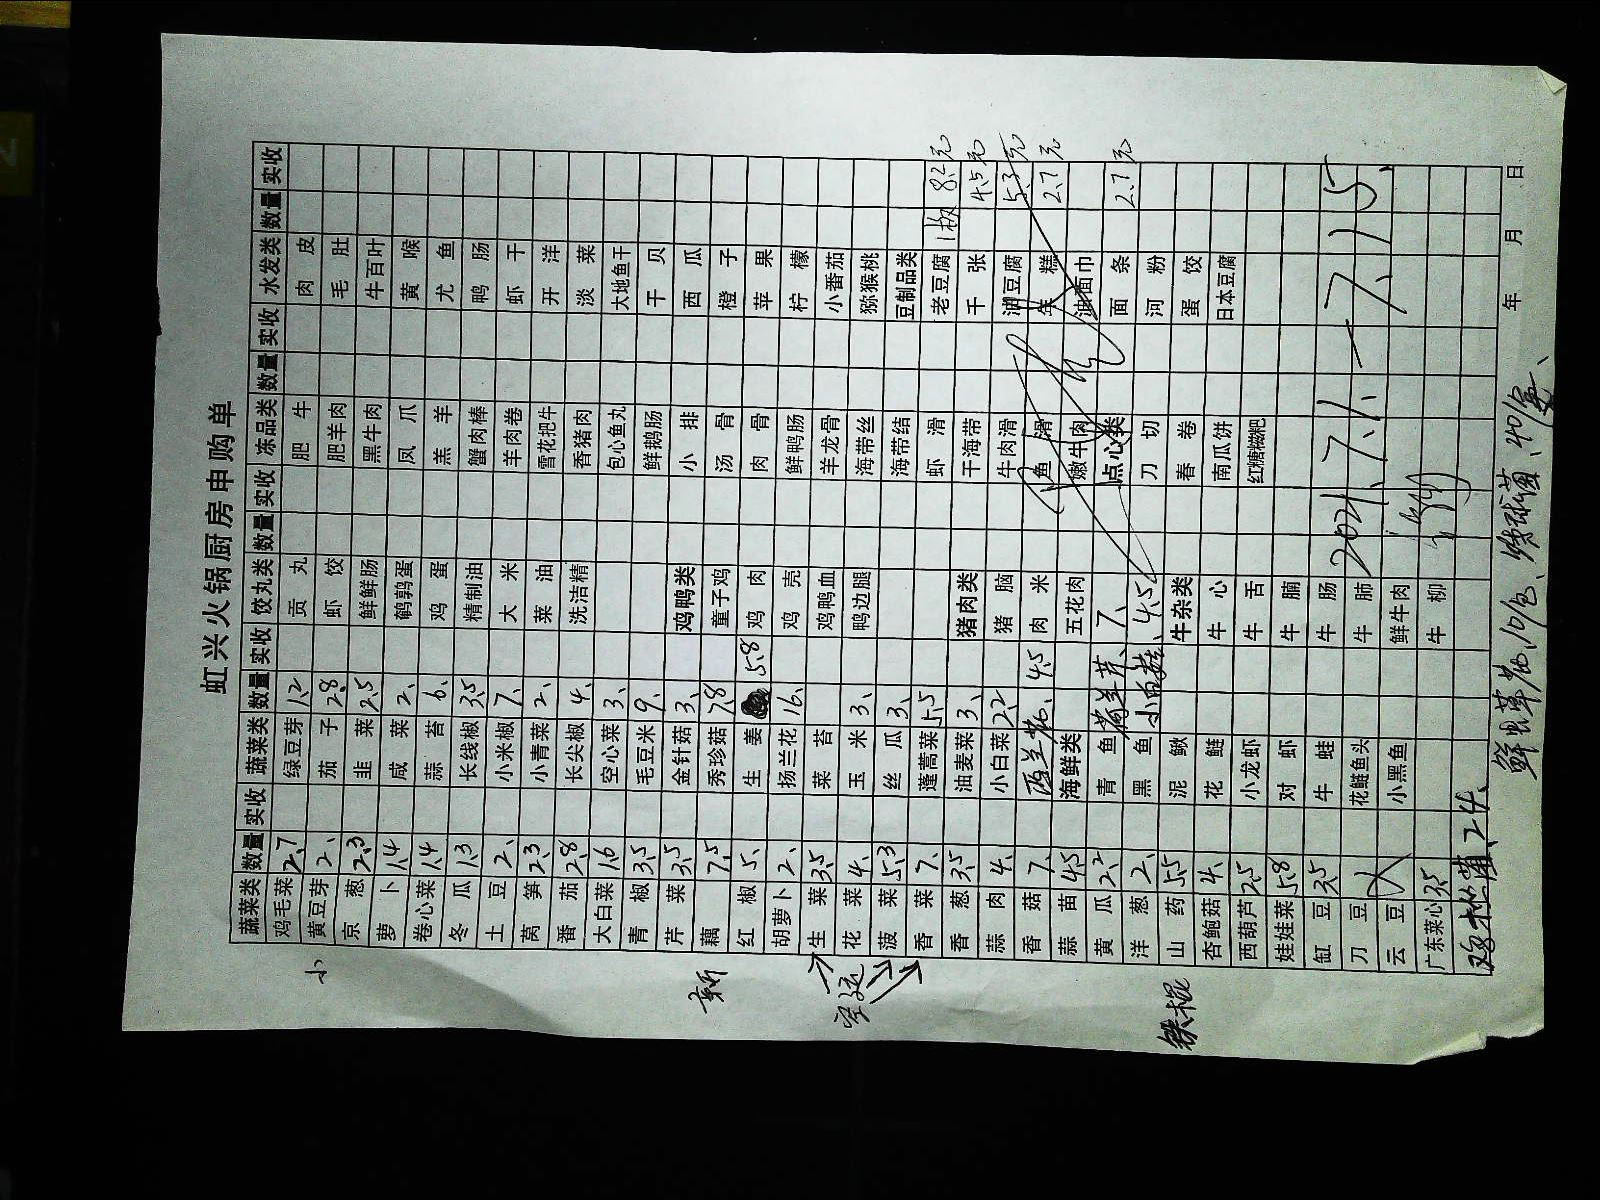 虹兴火锅厨房申购单
蔬菜类 数量 实收 蔬菜类 数量 实收 饺丸类 数量 实收 冻品类 数量 实收 水发类 数量 实收
鸡毛菜 2.7 绿豆芽 1.2 贡丸 肥牛 肉皮
黄豆芽 2、 茄子 2.8 虾饺 肥羊肉 毛肚
京葱 2.3 韭菜 2.5 鲜鲜肠 黑牛肉 牛百叶
萝卜 1.4 咸菜 2、 鹌鹑蛋 凤爪 黄喉
卷心菜 1.4 蒜苔 6、 鸡蛋 羔羊 尤鱼
冬瓜 1.3 长线椒 3.5 精制油 蟹肉棒 鸭肠
土豆 2、 小米椒 7、 大米 羊肉卷 虾干
莴笋 2.3 小青菜 2、 菜油 雪花把牛 开洋
番茄 2.8 长尖椒 4、 洗洁精 香猪肉 淡菜
大白菜 1.6 空心菜 3、 包心鱼丸 大地鱼干
青椒 3.5 毛豆米 9、 鲜鹅肠 干贝
芹菜 3.5 金针菇 3、 鸡鸭类 小排 西瓜
藕 7.5 秀珍菇 7.8 童子鸡 汤骨 橙子
红椒 5、 生姜 5.8 鸡肉 肉骨 苹果
胡萝卜 2、 扬兰花 16、 鸡壳 鲜鸭肠 柠檬
生菜 3.5 菜苔 鸡鸭血 羊龙骨 小番茄
花菜 4、 玉米 3、 鸭边腿 海带丝 猕猴桃
菠菜 5.3 丝瓜 3、 海带结 豆制品类
香菜 7、 蓬蒿菜 5.5 虾滑 老豆腐 1板 82元
香葱 3.5 油麦菜 3、 猪肉类 干海带 千张 4.5元
蒜肉 4、 小白菜 2.2 猪脑 牛肉滑 油豆腐 5.3元
香菇 7、 西兰花、 4.5 肉米 鱼滑 年糕 2.7元
蒜苗 4.5 海鲜类 五花肉 嫩牛肉 油面巾
黄瓜 2.2 青鱼 荷兰芹、 7、 点心类 面条 2.7元
洋葱 2、 黑鱼 4.5 刀切 河粉
山药 5.5 泥鳅 牛杂类 春卷 蛋饺
杏鲍菇 4、 花鲢 牛心 南瓜饼 日本豆腐
西葫芦 2.5 小龙虾 牛舌 红糖糍粑
娃娃菜 5.8 对虾 牛腩
缸豆 3.5 牛蛙 牛肠 2021、7.1—7.15、
刀豆 花鲢鱼头 牛肺
云豆 小黑鱼 鲜牛肉
广东菜心 3.5 牛柳
年 月 日
小
新
铁棍